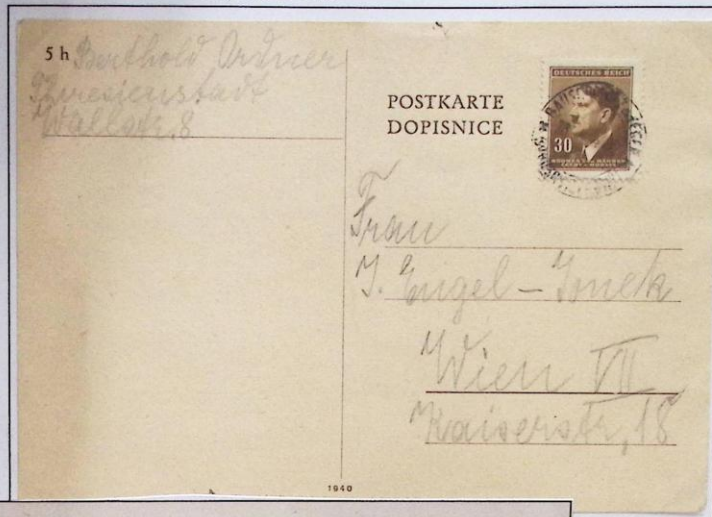 5 h Berthold Ordner
Theresienstadt
Wallstr. 8
POSTKARTE
DOPISNICE
DEUTSCHES REICH
30
BÖHMEN UND MÄHREN
Frau
J. Engel - Jonek
Wien VII
Kaiserstr, 18
1940